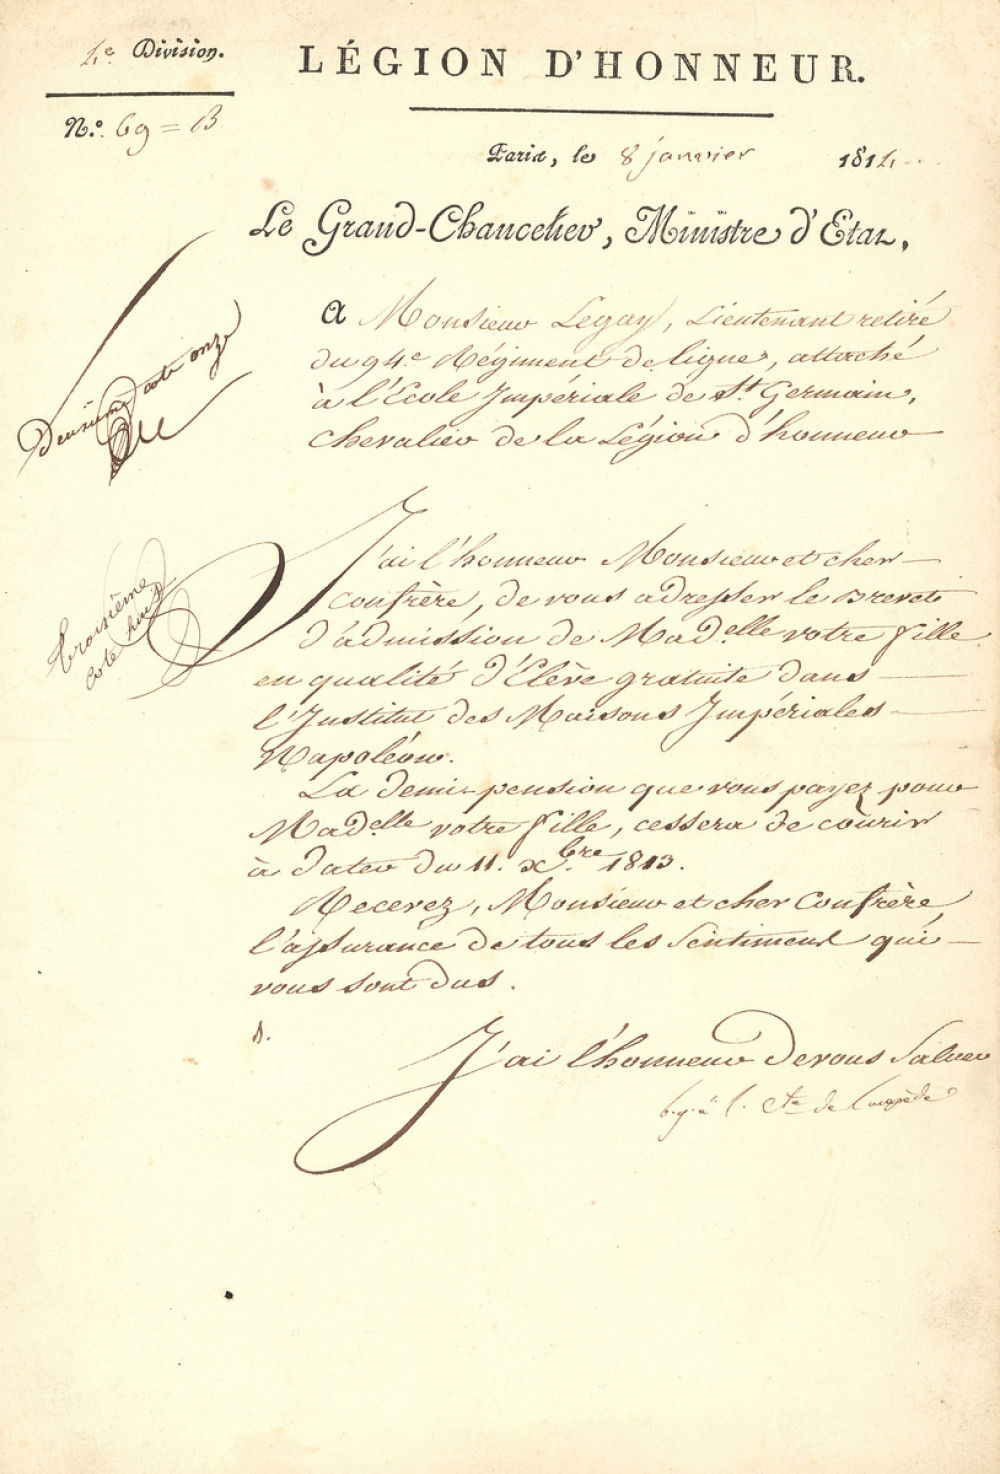 4e. Division.
LÉGION D'HONNEUR.
N.o 69 = B
Paris, le 8 janvier 1814.
Le Grand-Chancelier, Ministre d'Etat,
A Monsieur Legay, Lieutenant retiré
du 94e Régiment de ligne, attaché
à l'École Impériale de St. Germain,
chevalier de la Légion d'honneur
Deuxième cote onze
J'ai l'honneur Monsieur et cher
confrère, de vous adresser le Brevet
d'admission de Mad.elle votre fille
en qualité d'Élève gratuite dans
l'Institut des Maisons Impériales
Napoléon.
troisième
cote huit
La demi-pension que vous payez pour
Mad.elle votre fille, cessera de courir
à dater du 11. xbre. 1813.
Recevez, Monsieur et cher Confrère,
l'assurance de tous les sentimens qui
vous sont dus.
J'ai l'honneur de vous saluer
Cte de Lacepède